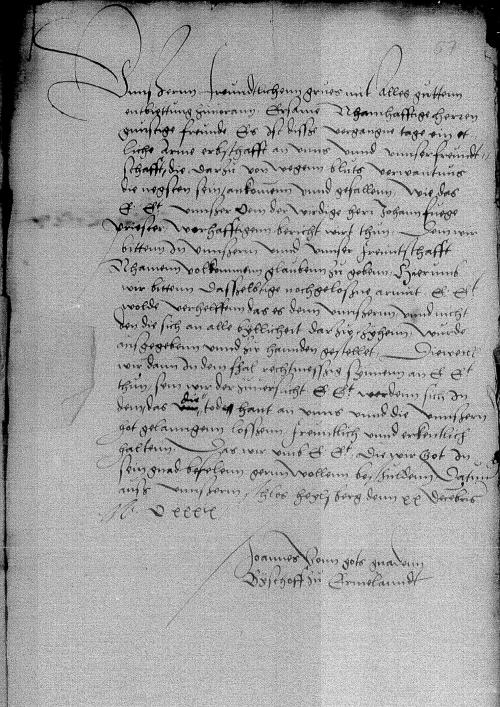 Unnszernn freundtlichenn grues mit Alles guttenn
entbiettung zuuorann Ersame Nhamhafftige herren
gunstige freunde Es ist disse vergangne tage ein et
liche Arme erbschafft an unns unnd unnser freundt
schafft, die darzu von wegenn bluts verwantnus
die negsten sein, ankomen unnd gefallenn, wie das
E Et unnszer Oem der wirdige her Johann
Priester warhafftigenn bericht wirt thun. Denn wir
bittenn In unnszernn unnd unnser freuntschafft
Nhamenn volkommenn glaubenn zu gebenn. Hierumb
wir bittenn dasselbtige nochgelossne armut E Et
wolde verhelffenn das es denn unnszernn unnd nicht
den die sich an alle byllicheit darzu zyhenn wurde
ausgegebenn unnd zu handen gestellet. Dieweill
wir dann In dem fhal rechtmessig synnenn an E Et
thun, sein wir der zuuersicht E Et werdenn sich In
dem, das die todes hant an unns unnd die unnszern
hot gelanngenn lossenn, freuntlich unnd erkentlich
haltenn. Das wir umb E Et, die wir Got In
sein gnad befelenn, gernn wollenn beschuldenn, Datum
auss unnszerm Schlos Heylsberg denn xx Decebris
D xxxx
Joannes Vonn gots gnadenn
Byschoff zu Ermelanndt